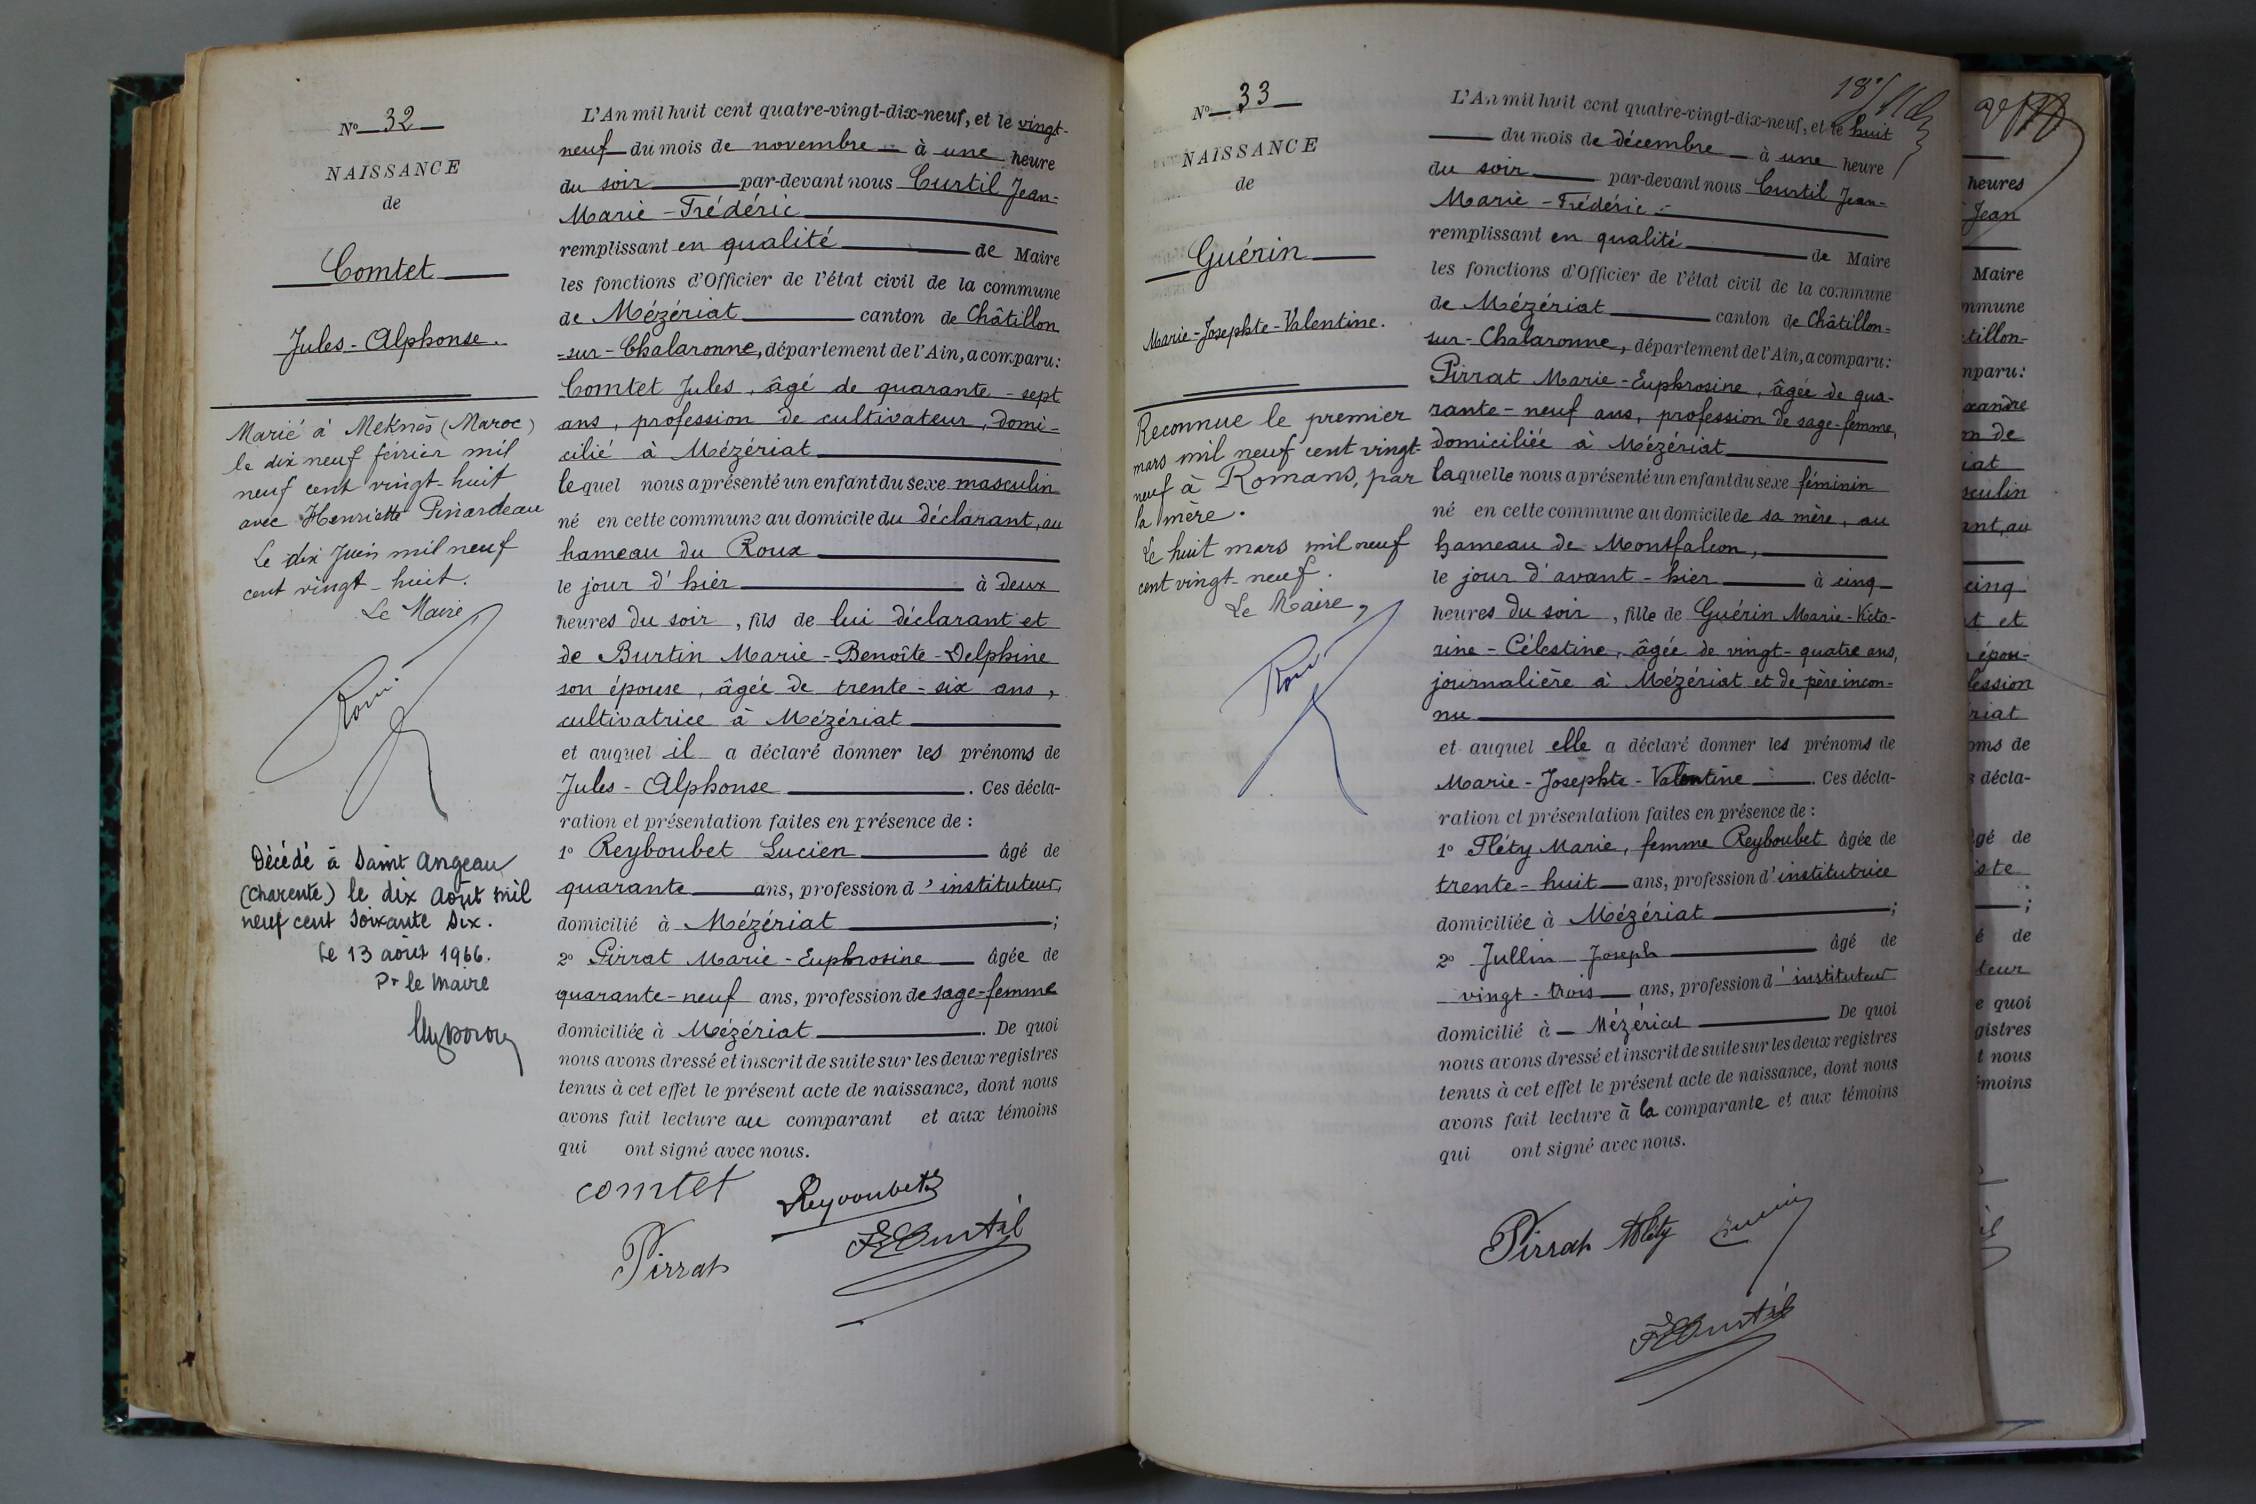 N° 32
NAISSANCE
de
Comtet
Jules-Alphonse.
Marié à Meknès (Maroc)
le dix neuf février mil
neuf cent vingt-huit
avec Henriette Pinardeau
Le dix Juin mil neuf
cent vingt-huit.
Le Maire
Décédé à Saint Angeau
(Charente) le dix Août mil
neuf cent soixante six.
Le 13 août 1966.
Pr le Maire
L'An mil huit cent quatre-vingt-dix-neuf, et le vingt-
neuf du mois de novembre à une heure
du soir par-devant nous Curtil Jean-
Marie-Frédéric
remplissant en qualité de Maire
les fonctions d'Officier de l'état civil de la commune
de Mézériat canton de Châtillon
-sur-Chalaronne, département de l'Ain, a comparu:
Comtet Jules, âgé de quarante-sept
ans, profession de cultivateur, domi-
cilié à Mézériat
lequel nous a présenté un enfant du sexe masculin
né en cette commune au domicile du déclarant, au
hameau du Roux
le jour d'hier à deux
heures du soir, fils de lui déclarant et
de Burtin Marie-Benoîte-Delphine
son épouse, âgée de trente-six ans,
cultivatrice à Mézériat
et auquel il a déclaré donner les prénoms de
Jules-Alphonse. Ces décla-
ration et présentation faites en présence de :
1° Reyboubet Lucien âgé de
quarante ans, profession d'instituteur,
domicilié à Mézériat ;
2° Pirrat Marie-Euphrosine âgée de
quarante-neuf ans, profession de sage-femme
domiciliée à Mézériat. De quoi
nous avons dressé et inscrit de suite sur les deux registres
tenus à cet effet le présent acte de naissance, dont nous
avons fait lecture au comparant et aux témoins
qui ont signé avec nous.
comtet Reyboubet
Pirrat F Curtil
N° 33
NAISSANCE
de
Guérin
Marie-Josephte-Valentine.
Reconnue le premier
mars mil neuf cent vingt-
neuf à Romans, par
la mère.
Le huit mars mil neuf
cent vingt-neuf.
Le Maire,
L'An mil huit cent quatre-vingt-dix-neuf, et le huit
du mois de décembre à une heure
du soir par-devant nous Curtil Jean-
Marie-Frédéric
remplissant en qualité de Maire
les fonctions d'Officier de l'état civil de la commune
de Mézériat canton de Châtillon-
sur-Chalaronne, département de l'Ain, a comparu:
Pirrat Marie-Euphrosine, âgée de qua-
rante-neuf ans, profession de sage-femme,
domiciliée à Mézériat
laquelle nous a présenté un enfant du sexe féminin
né en cette commune au domicile de sa mère, au
hameau de Montfalcon,
le jour d'avant-hier à cinq
heures du soir, fille de Guérin Marie-Victo-
rine-Célestine, âgée de vingt-quatre ans,
journalière à Mézériat et de père incon-
nu
et auquel elle a déclaré donner les prénoms de
Marie-Josephte-Valentine. Ces décla-
ration et présentation faites en présence de :
1° Fléty Marie, femme Reyboubet âgée de
trente-huit ans, profession d'institutrice
domiciliée à Mézériat ;
2° Jullin Joseph âgé de
vingt-trois ans, profession d'instituteur
domicilié à Mézériat De quoi
nous avons dressé et inscrit de suite sur les deux registres
tenus à cet effet le présent acte de naissance, dont nous
avons fait lecture à la comparante et aux témoins
qui ont signé avec nous.
Pirrat M Fléty
F Curtil
heures
Jean
Maire
mmune
tillon-
mparu:
exandre
on de
iat
sculin
ant, au
cinq
t et
épou-
fession
riat
oms de
s décla-
âgé de
iste
;
é de
teur
e quoi
gistres
t nous
émoins